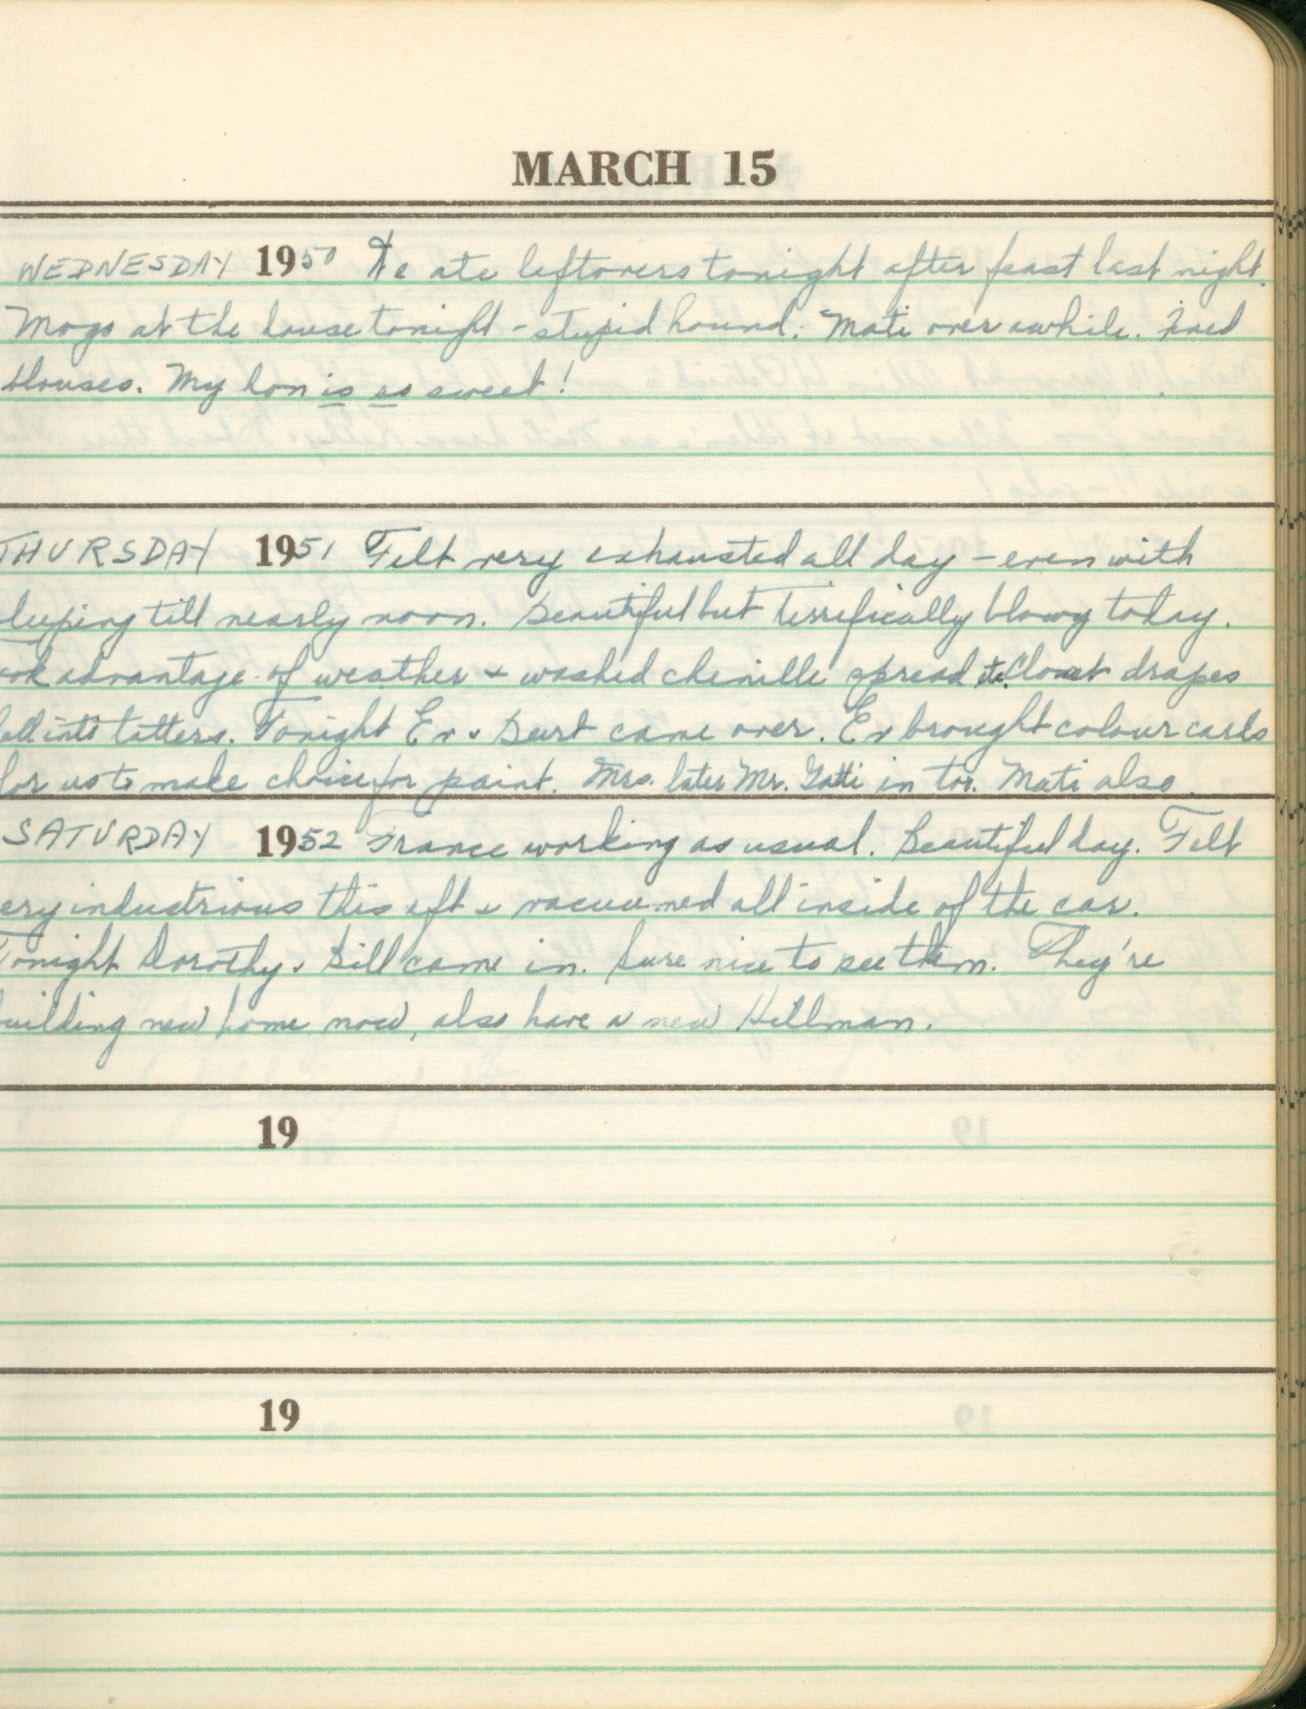 MARCH 15
WEDNESDAY 1950 We ate leftovers tonight after feast last night.
Mogs at the house tonight - stupid hound. Mati over awhile. Fixed
blouses. My hon is so sweet!
THURSDAY 1951 Felt very exhausted all day - even with
leeping till nearly noon. Beautiful but terrifically blowy today.
ook advantage of weather + washed chenille spread Closet drapes
ell into tatters. Tonight Ev + Burt came over. Ev brought colour cards
for us to make choice for paint. Mrs. later Mr. Gatti in too. Mati also.
SATURDAY 1952 France working as usual. Beautiful day. Felt
ery industrious this aft + vacuumed all inside of the car.
Tonight Dorothy + Bill came in. Sure nice to see them. They're
uilding new home now, also have a new Hillman.
19
19